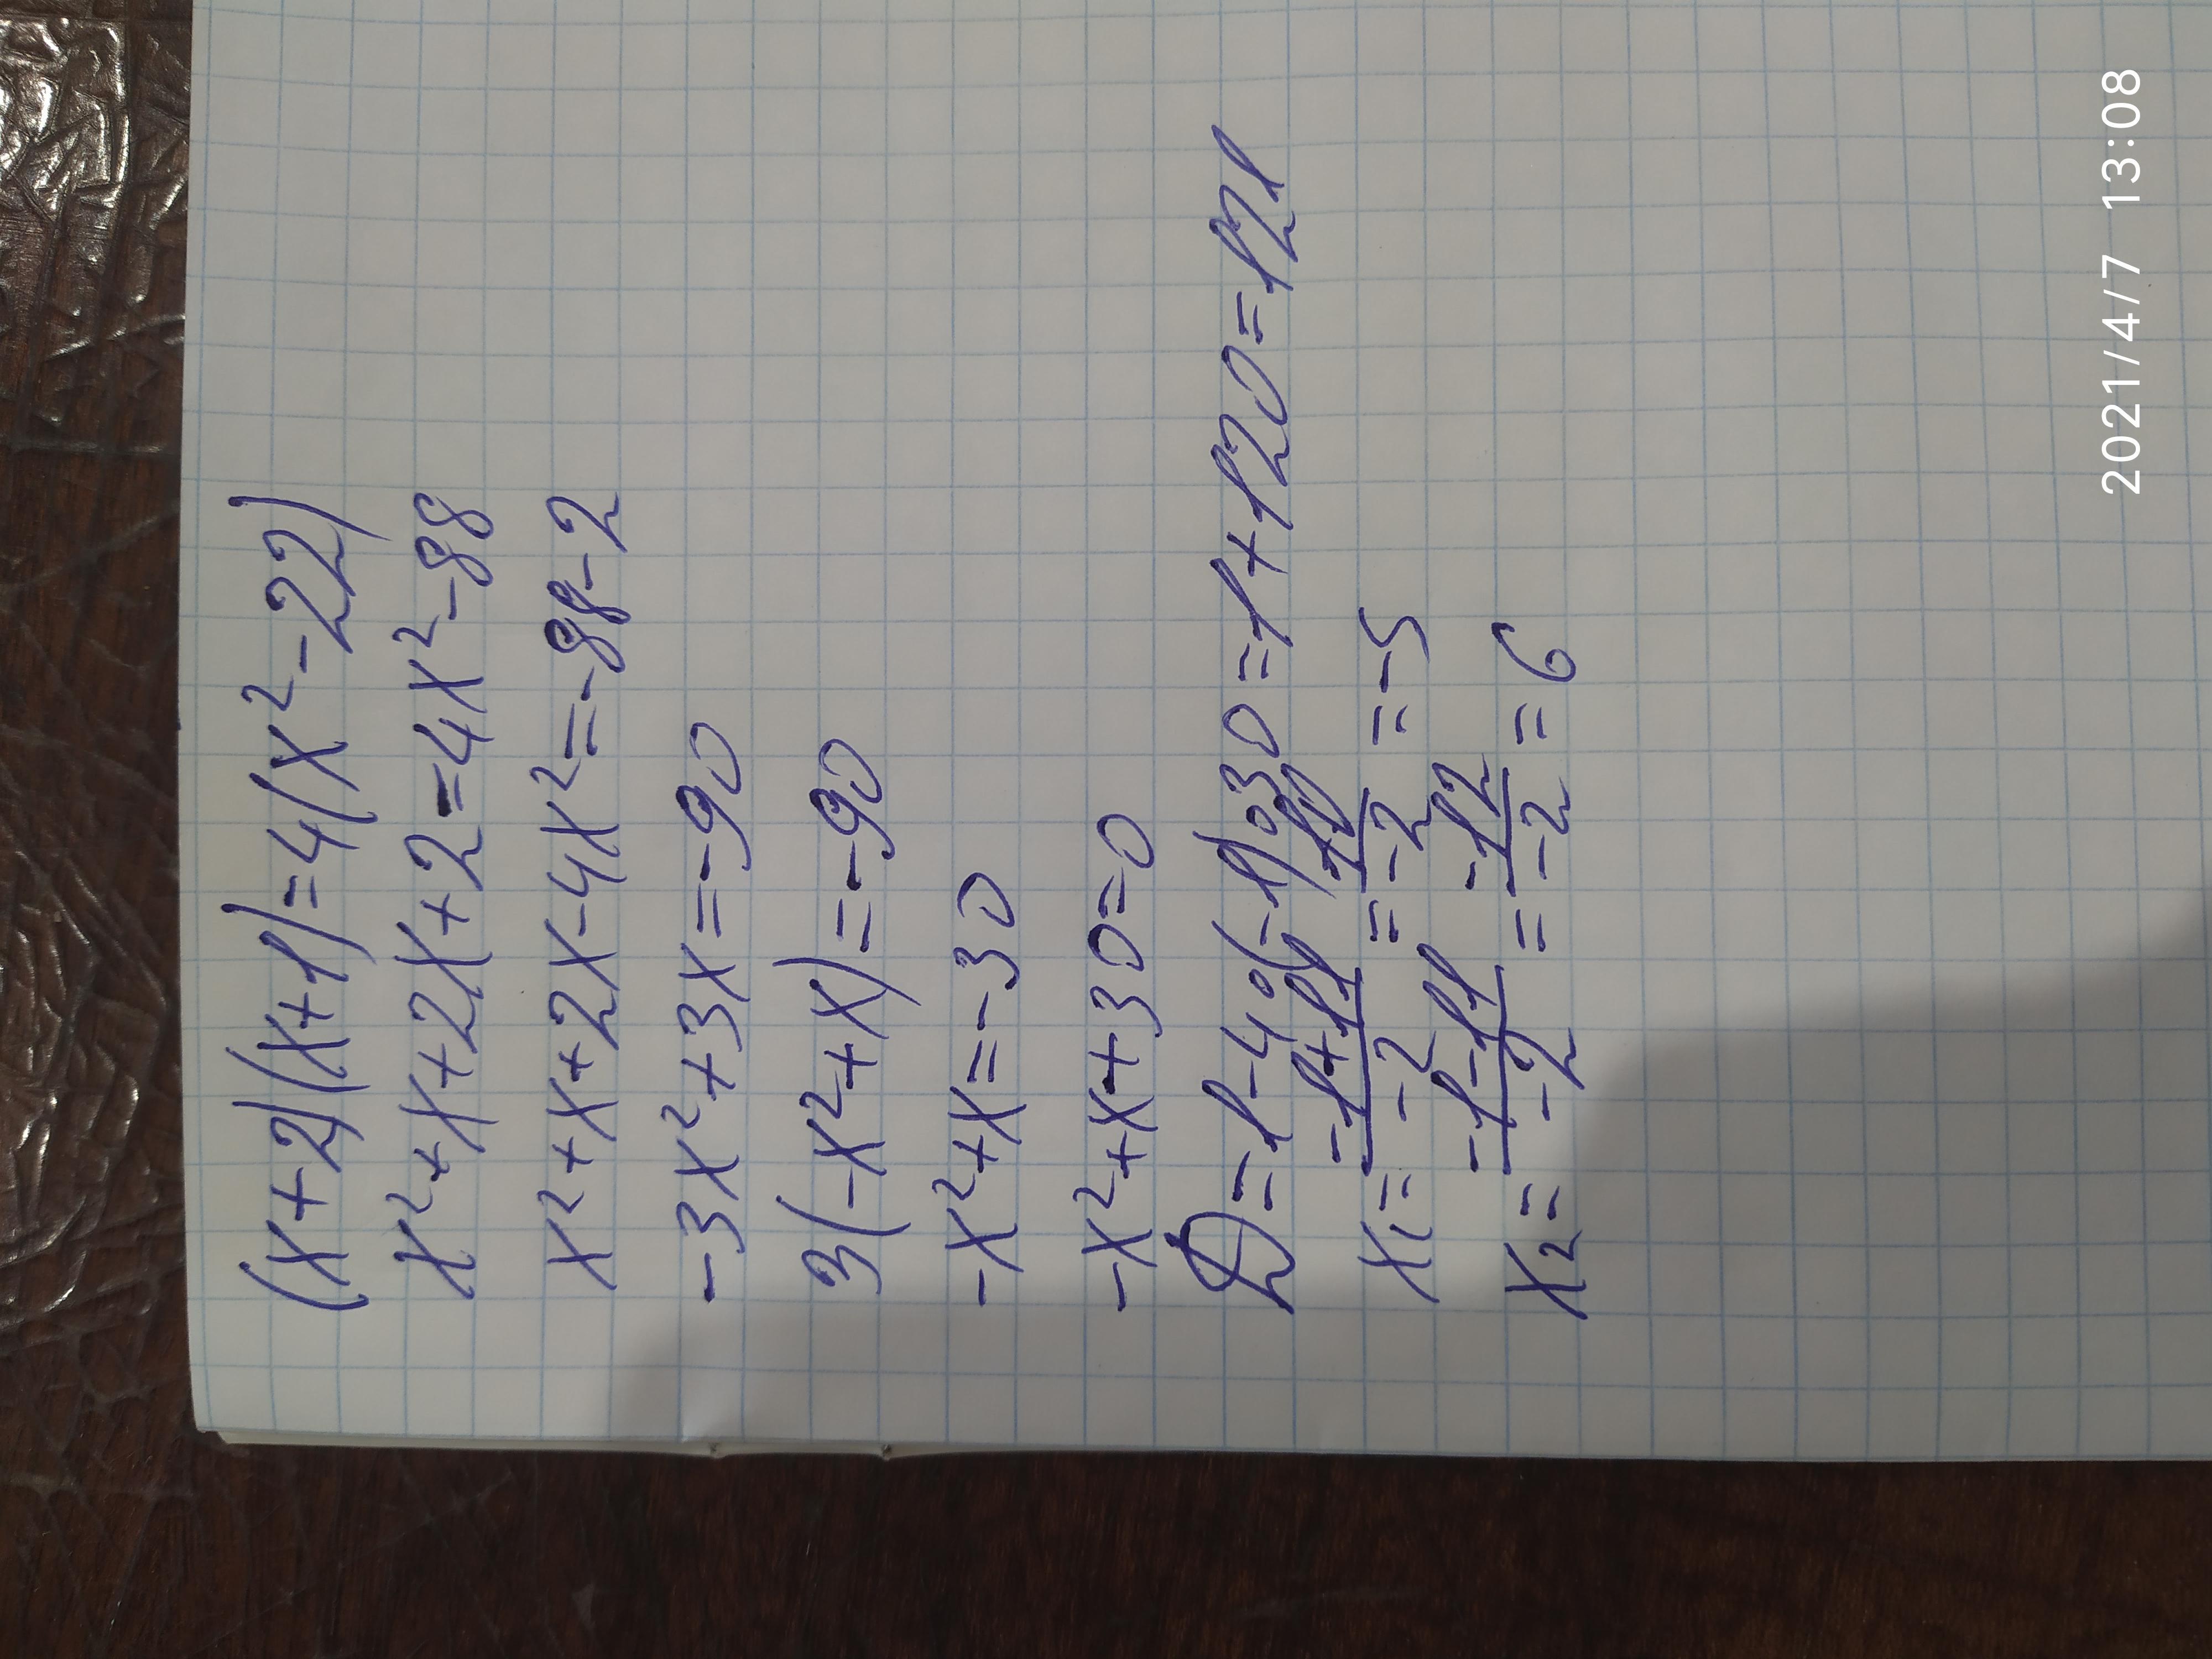 (x+2)(x+1)=4(x²-22)
x²+x+2x+2=4x²-88
x²+x+2x-4x²=-88-2
-3x²+3x=-90
3(-x²+x)=-90
-x²+x=-30
-x²+x+30=0
D=1-4∘(-1)∘30=1+120=121
x₁=(-1+11)/-2=+10/-2=-5
x₂=(-1-11)/-2=-12/-2=6
2021/4/7 13:08